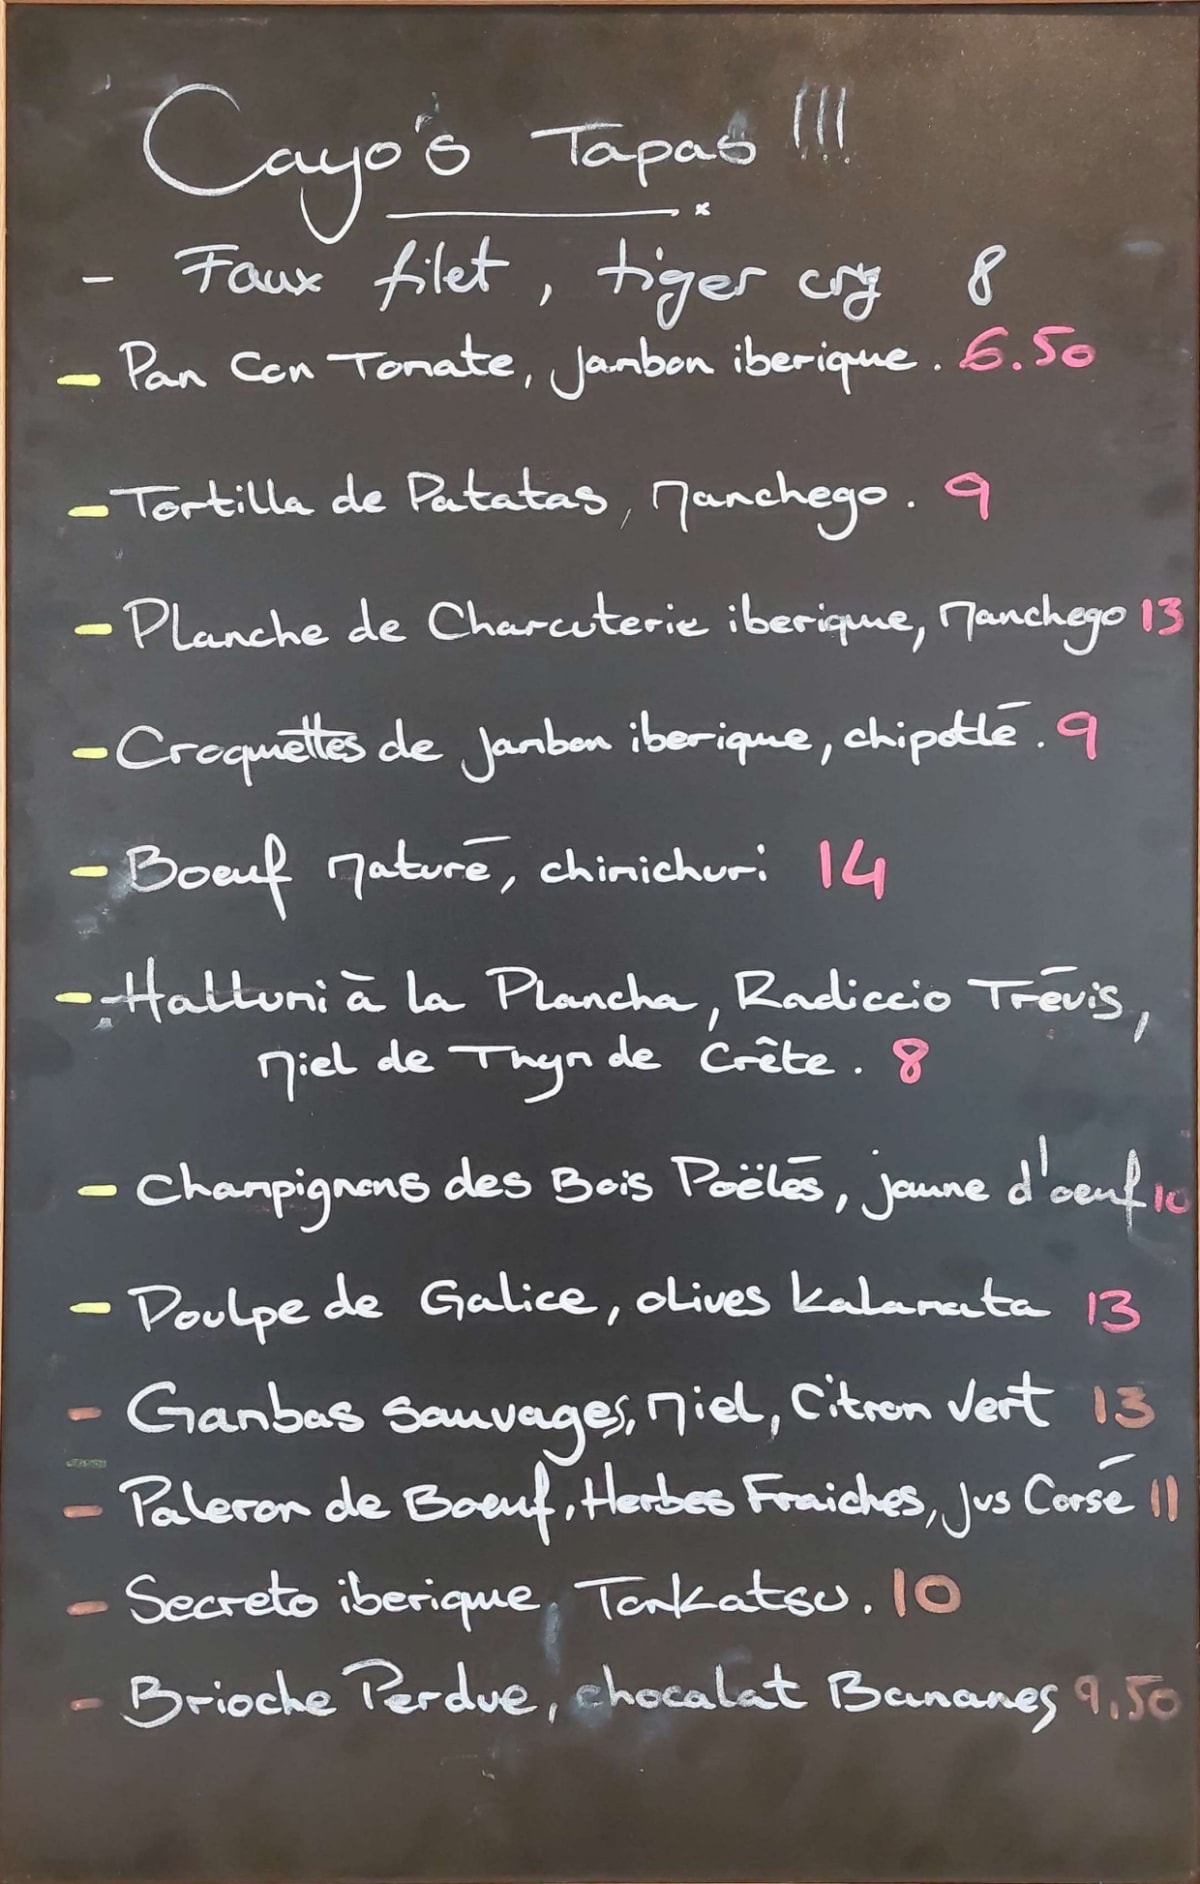 Cayo's Tapas !!!
- Faux filet, tiger cry 8
- Pan Con Tomate, jambon iberique. 6.50
- Tortilla de Patatas, Manchego. 9
- Planche de Charcuterie iberique, Manchego 13
- Croquettes de jambon iberique, chipotlé. 9
- Boeuf Maturé, chimichuri 14
- Halluni à la Plancha, Radiccio Trévis,
Miel de Thym de Crête. 8
- Champignons des Bois Poëlés, jaune d'oeuf 10
- Poulpe de Galice, olives Kalamata 13
- Gambas sauvages, Miel, Citron Vert 13
- Paleron de Boeuf, Herbes Fraiches, jus Corsé 11
- Secreto iberique, Tonkatsu. 10
- Brioche Perdue, chocolat Bananes 9,50